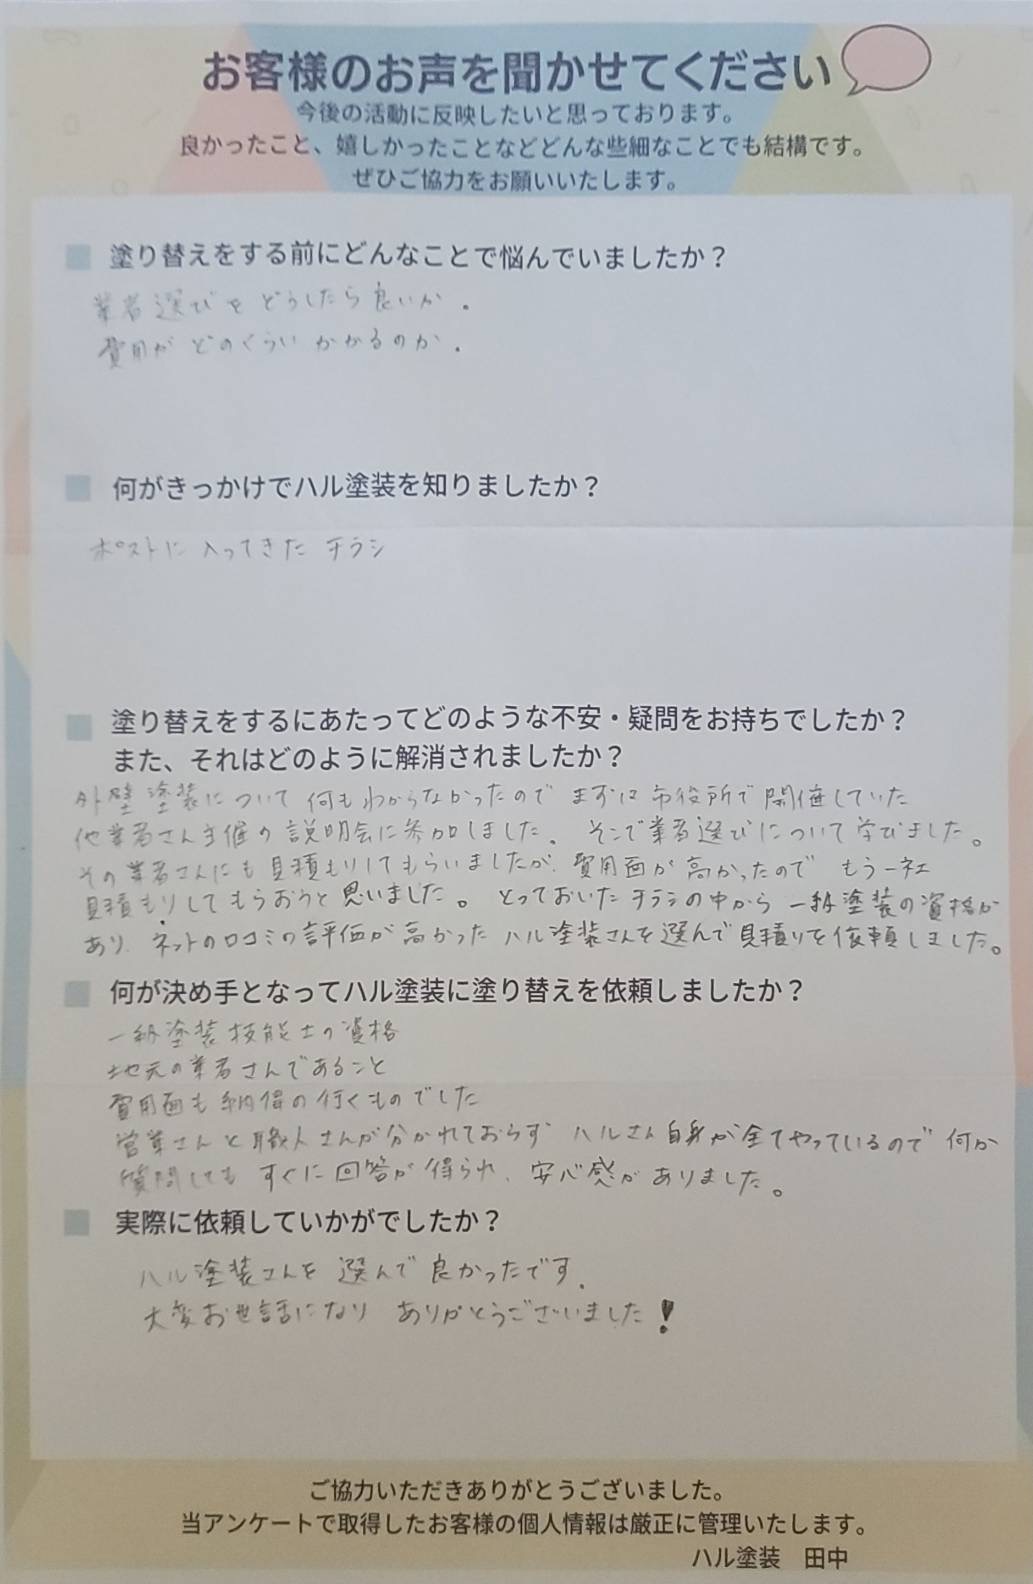 お客様のお声を聞かせてください
今後の活動に反映したいと思っております。
良かったこと、嬉しかったことなどどんな些細なことでも結構です。
ぜひご協力をお願いいたします。
塗り替えをする前にどんなことで悩んでいましたか？
業者選びをどうしたら良いか。
費用がどのくらいかかるのか。
何がきっかけでハル塗装を知りましたか？
ポストに入ってきたチラシ
塗り替えをするにあたってどのような不安・疑問をお持ちでしたか？
また、それはどのように解消されましたか？
外壁塗装について何もわからなかったのでまずは市役所で開催していた
他業者さん主催の説明会に参加しました。そこで業者選びについて学びました。
その業者さんにも見積もりしてもらいましたが、費用面が高かったのでもう一社
見積もりしてもらおうと思いました。とっておいたチラシの中から一級塗装の資格が
あり、ネットの口コミの評価が高かったハル塗装さんを選んで見積りを依頼しました。
何が決め手となってハル塗装に塗り替えを依頼しましたか？
一級塗装技能士の資格
地元の業者さんであること
費用面も納得の行くものでした
営業さんと職人さんが分かれておらずハルさん自身が全てやっているので何か
質問してもすぐに回答が得られ、安心感がありました。
実際に依頼していかがでしたか？
ハル塗装さんを選んで良かったです。
大変お世話になりありがとうございました！
ご協力いただきありがとうございました。
当アンケートで取得したお客様の個人情報は厳正に管理いたします。
ハル塗装 田中